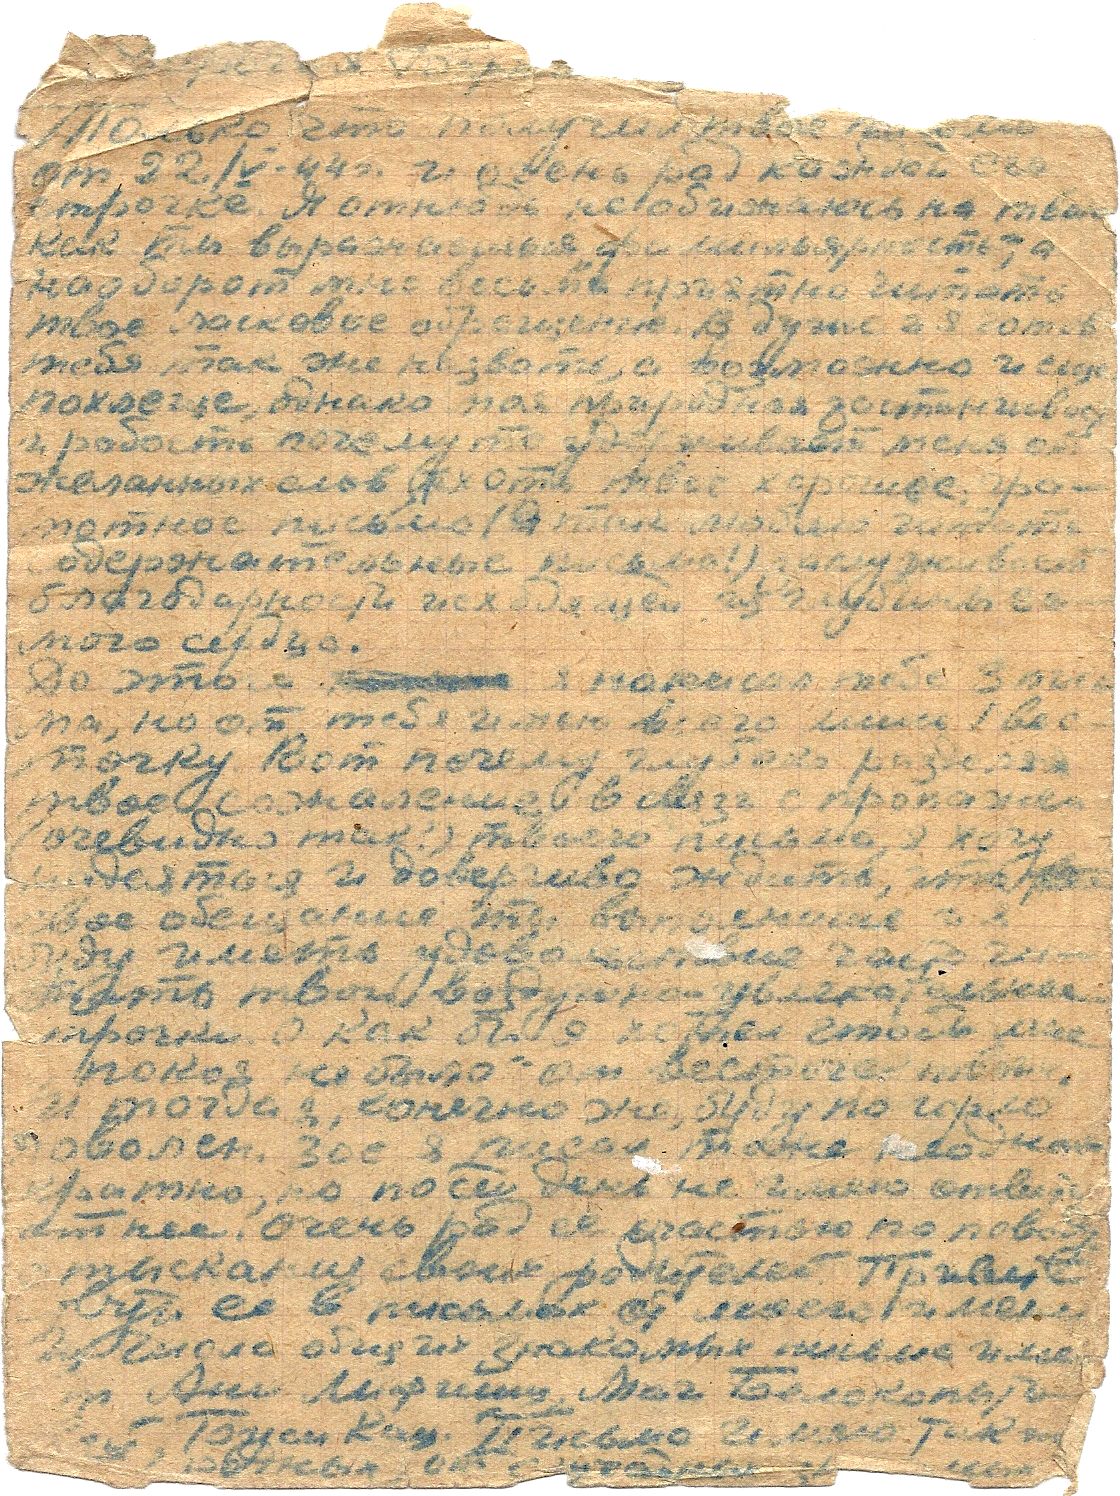 Только что получил твое письмо
от 22/IV-44г. и очень рад каждой его
строчке. Я отнюдь не обижаюсь на твою
как ты выражаешься фамильярность, а
наоборот мне весьма приятно читать
твое ласковое обращение. В душе и я готов
тебя так же назвать, а возможно и еще
похлеще, однако моя природная застенчивос
и робость почему то удерживает меня от
желанных слов хотя твое хорошее, гра-
мотное письмо (Я так люблю читать
содержательные письма!) заслуживает
благодарности исходящей из глубины са-
мого сердца.
До этого я я написал тебе 3 пись
ма, но от тебя имею всего лишь 1 вес-
точку. Вот почему глубоко разделяя
твое сожаление в связи с пропажей
(очевидно так!) твоего письма, я хочу
надеяться и доверчиво ждать, что
свое обещание ты выполнишь и я
буду иметь удовольствие часто чи-
тать твои воздушно-увлекательные
строчки. О как бы я хотел чтоб мне
покоя не было от весточек твоих,
И тогда я, конечно же, буду по горло
доволен. Зое я писал также неоднок
кратно, но по сей день не имею ответа
от нее. Очень рад её участию по поводу
отыскания своих родителей. Привет
ее в письмах от моего имени
Из числа общих знакомых письма имею
от Ани Лифшиц, Маи Белоконь
, Буси Кац. Письмо имею так